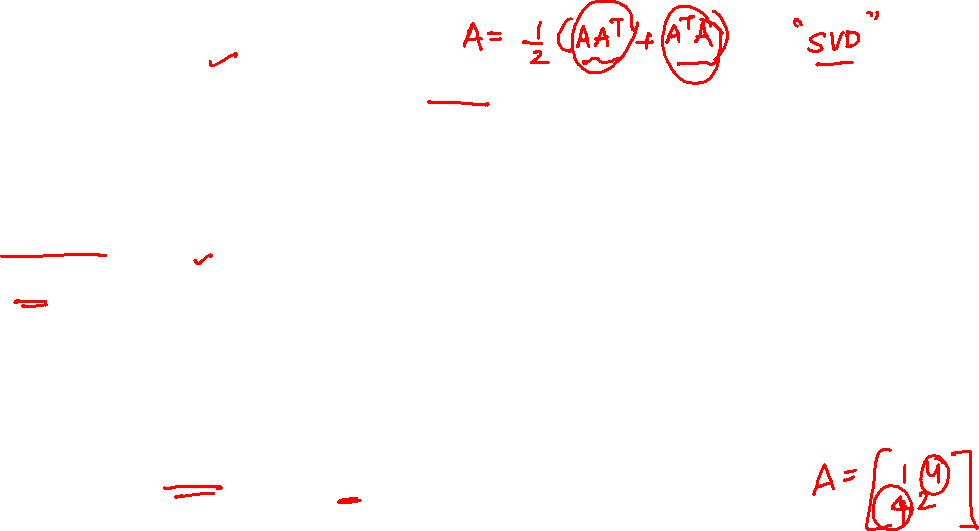 A = 1/2 (AAᵀ + AᵀA) "SVD"
A = [1 4
4 2]